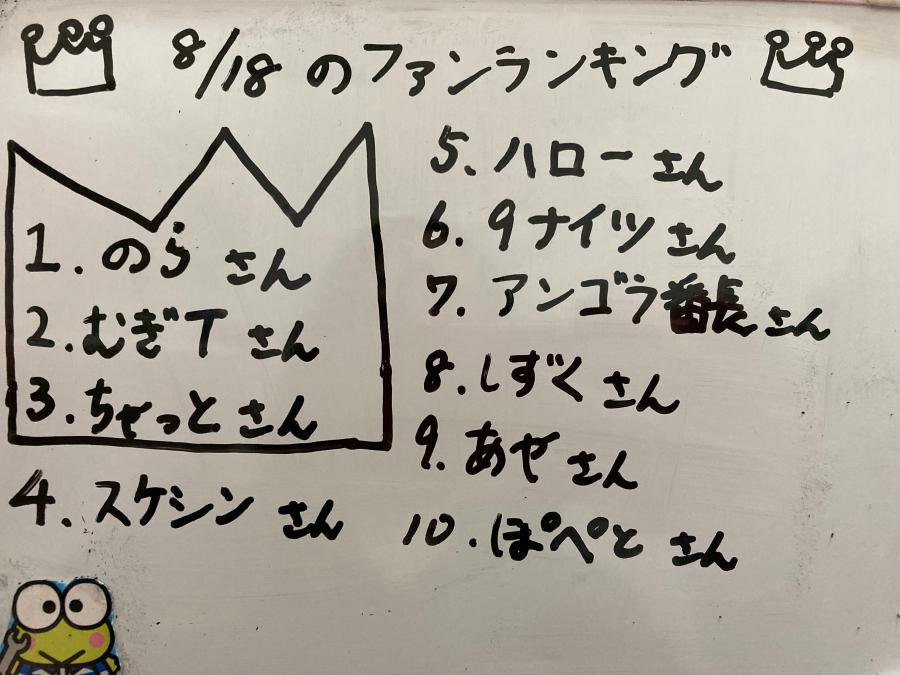 8/18のファンランキング
1.のらさん
2.むぎTさん
3.ちゃっとさん
4.スケシンさん
5.ハローさん
6.9ナイツさん
7.アンゴラ番長さん
8.しずくさん
9.あやさん
10.ぽぺとさん